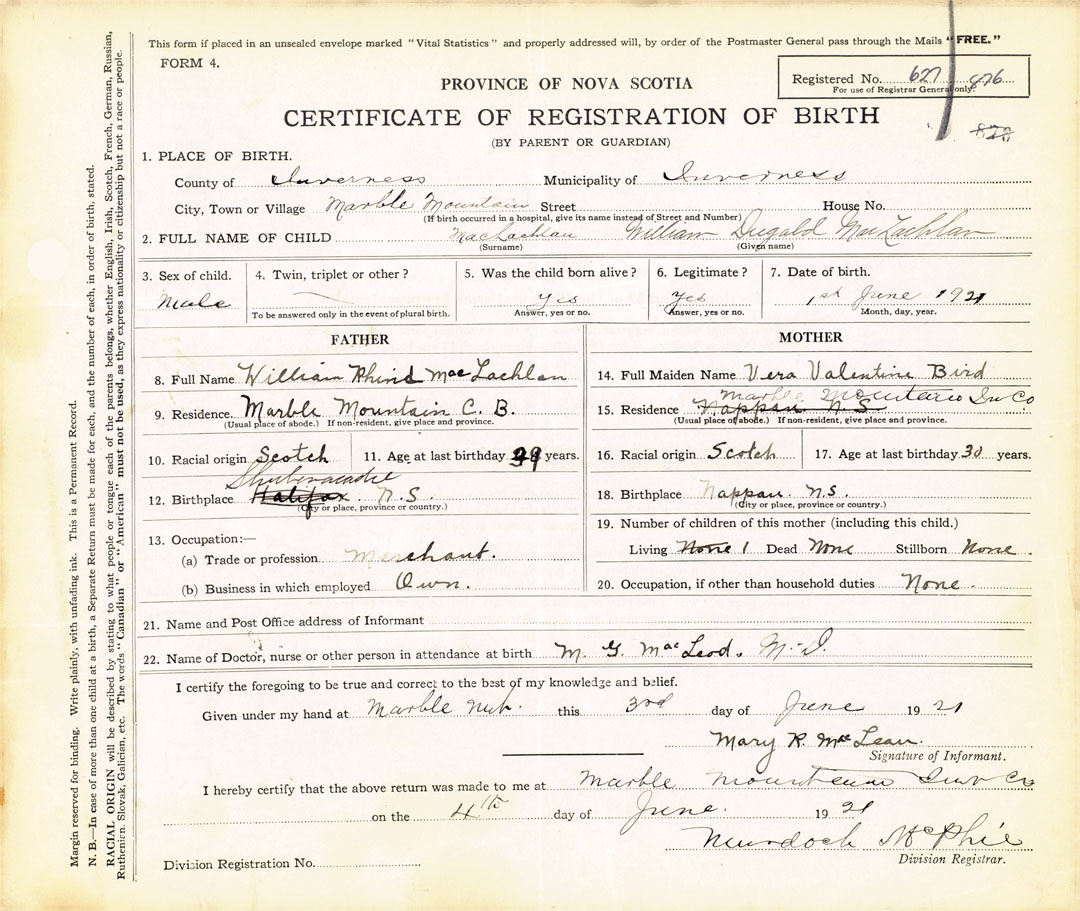 This form if placed in an unsealed envelope marked "Vital Statistics" and properly addressed will, by order of the Postmaster General pass through the Mails "FREE."
FORM 4.
PROVINCE OF NOVA SCOTIA
Registered No. 627 876
For use of Registrar General only.
CERTIFICATE OF REGISTRATION OF BIRTH
(BY PARENT OR GUARDIAN)
1. PLACE OF BIRTH.
County of Inverness Municipality of Inverness
City, Town or Village Marble Mountain Street House No.
(If birth occurred in a hospital, give its name instead of Street and Number)
2. FULL NAME OF CHILD MacLachlan William Dugald MacLachlan
(Surname) (Given name)
3. Sex of child. 4. Twin, triplet or other? 5. Was the child born alive? 6. Legitimate? 7. Date of birth.
Male Yes Yes 1st June 1921
To be answered only in the event of plural birth. Answer, yes or no. Answer, yes or no. Month, day, year.
FATHER
8. Full Name William Rhind MacLachlan
9. Residence. Marble Mountain C. B.
(Usual place of abode.) If non-resident, give place and province.
10. Racial origin Scotch 11. Age at last birthday 39 years.
Shubenacadie
12. Birthplace Halifax N.S.
(City or place, province or country.)
13. Occupation:—
(a) Trade or profession Merchant.
(b) Business in which employed Own.
MOTHER
14. Full Maiden Name Vera Valentine Bird
Marble Mountain Inv Co
15. Residence Nappan N.S
(Usual place of abode.) If non-resident, give place and province.
16. Racial origin Scotch 17. Age at last birthday 30 years.
18. Birthplace Nappan. N.S.
(City or place, province or country.)
19. Number of children of this mother (including this child.)
Living None 1 Dead None Stillborn None.
20. Occupation, if other than household duties None.
21. Name and Post Office address of Informant
22. Name of Doctor, nurse or other person in attendance at birth M. G. MacLeod. M.D.
I certify the foregoing to be true and correct to the best of my knowledge and belief.
Given under my hand at Marble this 3rd day of June 1921
Mary R. MacLean.
Signature of Informant.
I hereby certify that the above return was made to me at Marble Mountain Inv Co
on the 4th day of June. 1921
Murdoch McPhie
Division Registrar.
Division Registration No.
Margin reserved for binding. Write plainly, with unfading ink. This is a Permanent Record.
N. B.—In case of more than one child at a birth, a Separate Return must be made for each, and the number of each, in order of birth, stated.
RACIAL ORIGIN will be described by stating to what people or tongue each of the parents belongs, whether English, Irish, Scotch, French, German, Russian,
Ruthenian, Slovak, Galician, etc. The words "Canadian" or "American" must not be used, as they express nationality or citizenship but not a race or people.